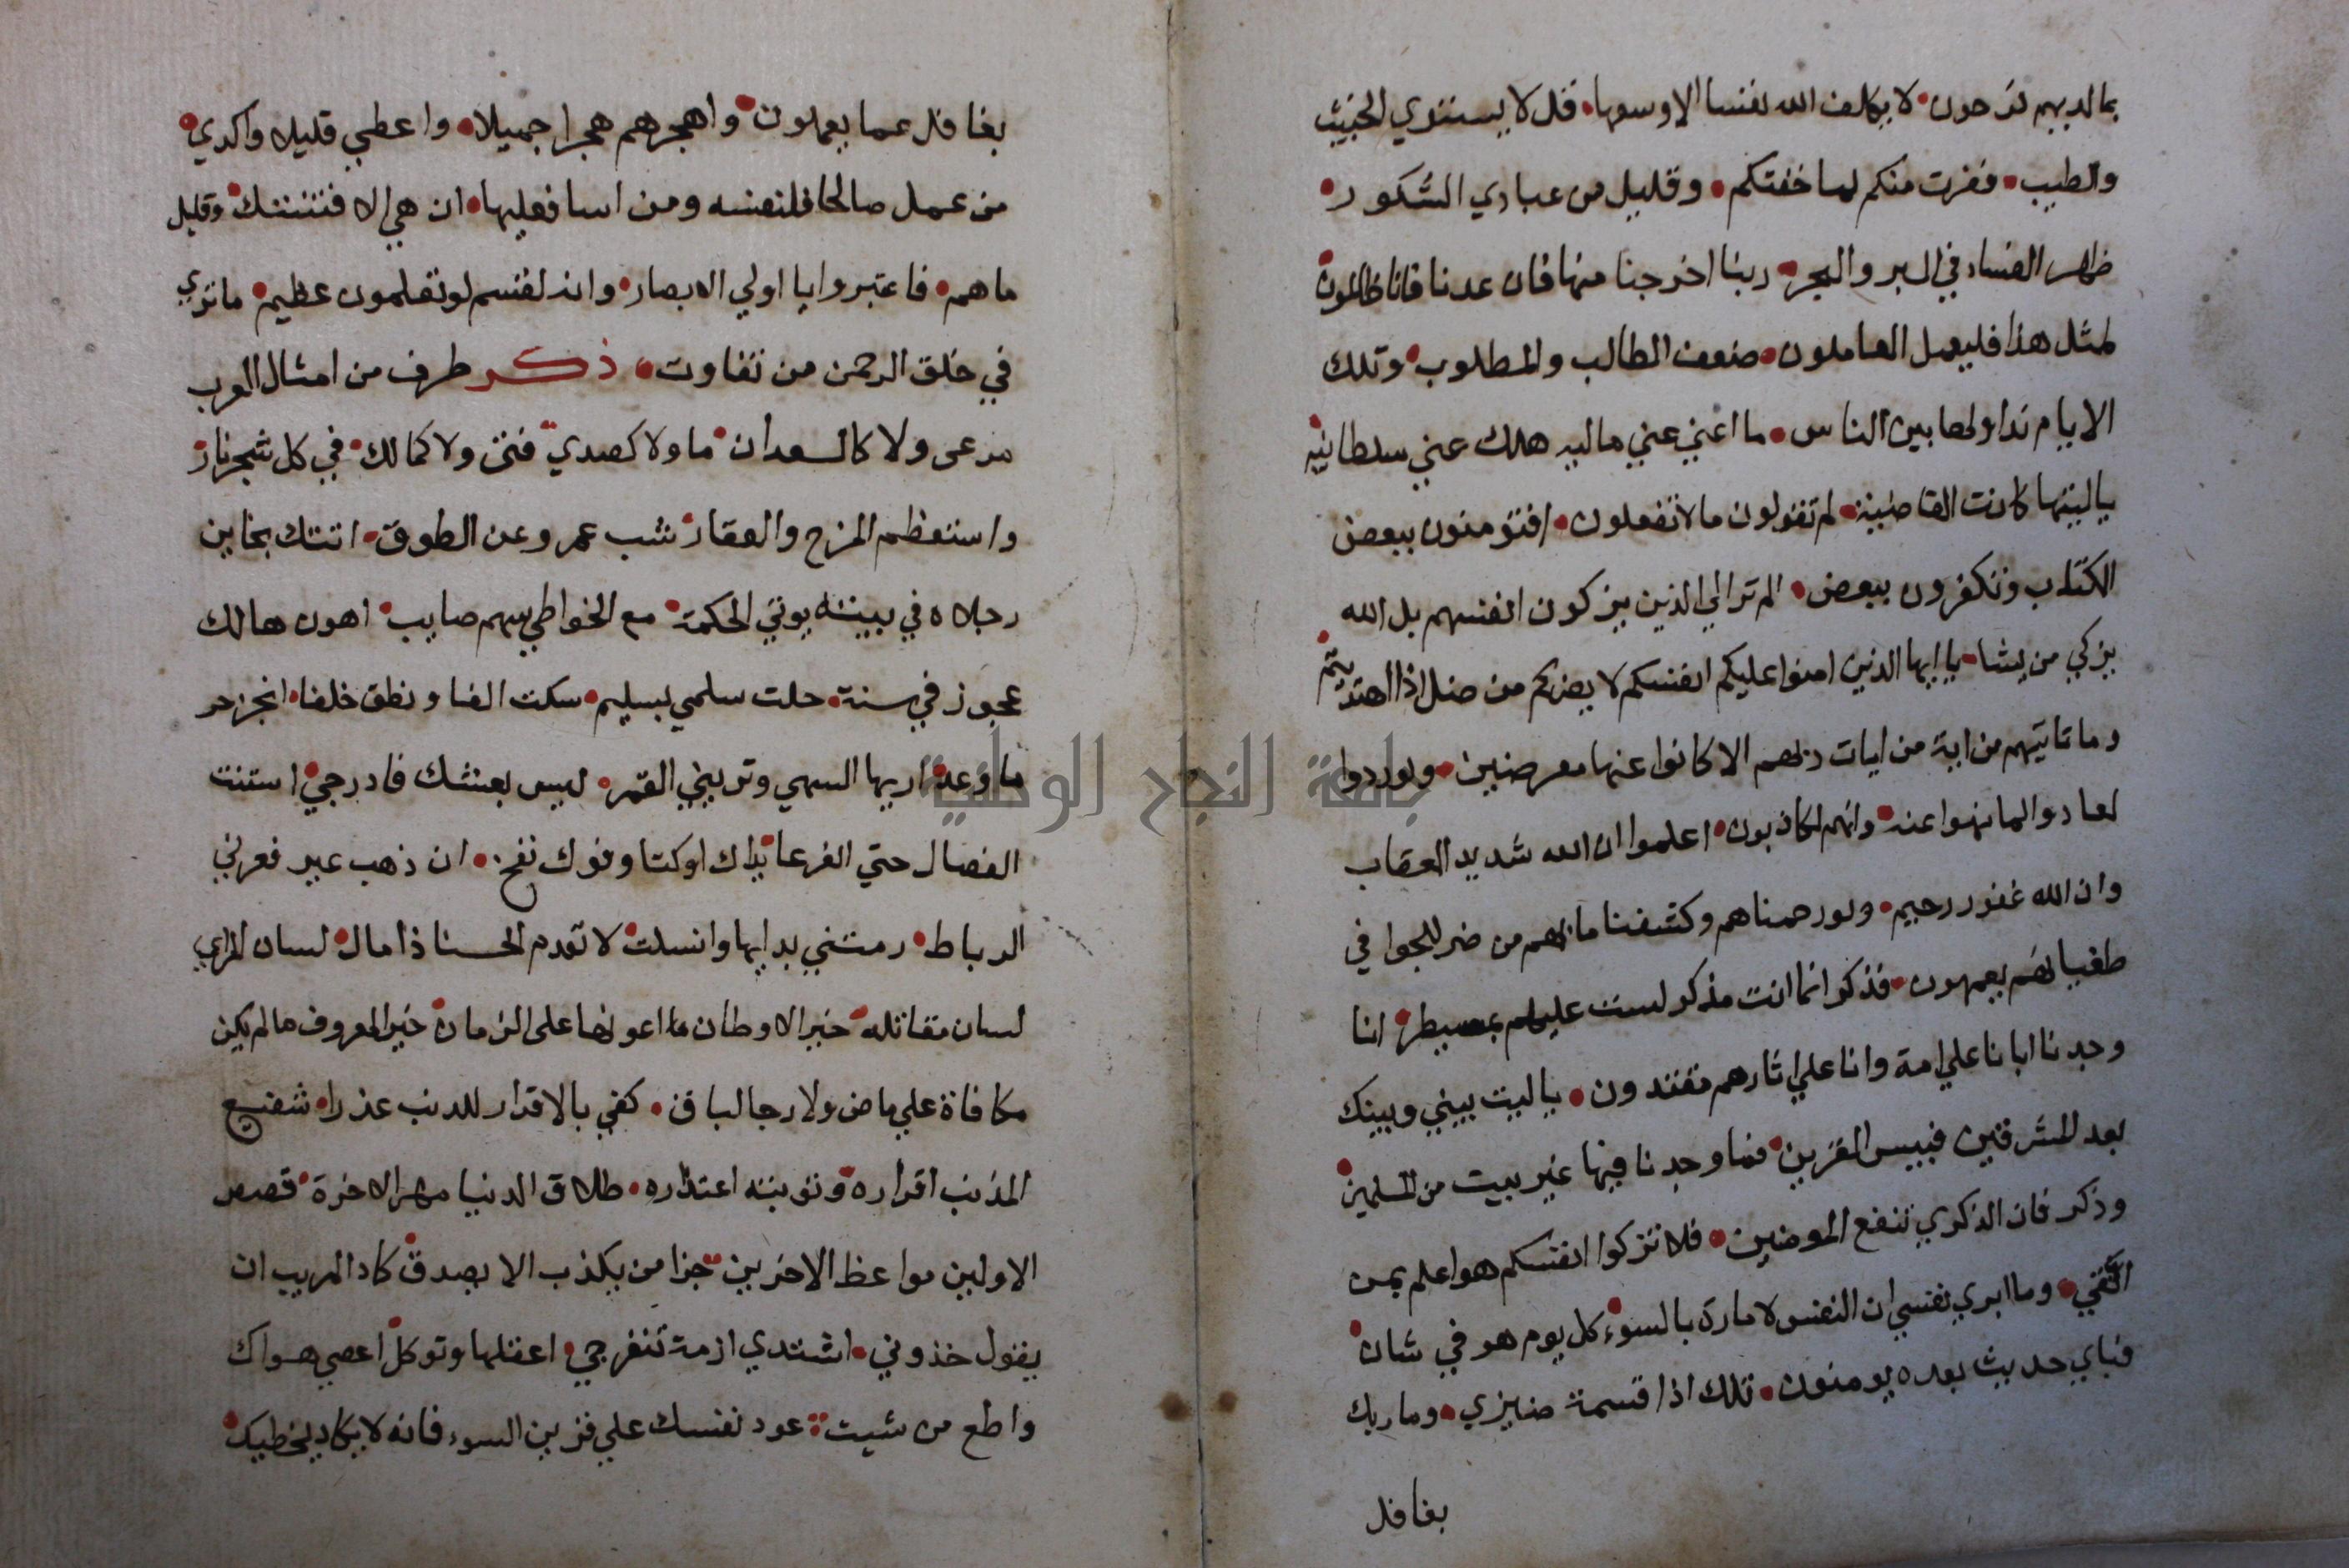 بما لديهم فرحون • لا يكلف الله نفسا الا وسعها • قل لا يستوي الخبيث
والطيب • ففرت منكم لما خفتكم • وقليل من عبادي الشكور •
ظهر الفساد في البر والبحر • ربنا اخرجنا منها فان عدنا فانا ظالمون •
لمثل هذا فليعمل العاملون • ضعف الطالب والمطلوب • وتلك
الايام نداولها بين الناس • ما اغني عني ماليه هلك عني سلطانيه •
ياليتها كانت القاضية • لم تقولون ما لا تفعلون • افتومنون ببعض
الكتاب وتكفرون ببعض • الم تر الي الذين يزكون انفسهم بل الله
يزكي من يشا • يا ايها الذين امنوا عليكم انفسكم لا يضركم من ضل اذا اهتديتم •
وما تاتيهم من اية من ايات ربهم الا كانوا عنها معرضين • ولو ردوا
لعادوا لما نهوا عنه • وانهم لكاذبون • اعلموا ان الله شديد العقاب
وان الله غفور رحيم • ولو رحمناهم وكشفنا ما بهم من ضر للجوا في
طغيانهم يعمهون • فذكر انما انت مذكر لست عليهم بمسيطر • انا
وجدنا ابانا علي امة وانا علي اثارهم مقتدون • ياليت بيني وبينك
بعد المشرقين فبيس القرين • فما وجدنا فيها غير بيت من المسلمين •
وذكر فان الذكري تنفع المومنين • فلا تزكوا انفسكم هو اعلم بمن
اتقي • وما ابري نفسي ان النفس لامارة بالسوء • كل يوم هو في شان •
فباي حديث بعده يومنون • تلك اذا قسمة ضيزي • وما ربك
بغافل
بغافل عما يعملون • واهجرهم هجرا جميلا • واعطي قليلا واكدي •
من عمل صالحا فلنفسه ومن اسا فعليها • ان هي الا فتنتك • وقليل
ما هم • فاعتبروا يا اولي الابصار • وانه لقسم لو تعلمون عظيم • ما تري
في خلق الرحمن من تفاوت • ذكر طرف من امثال العرب
مرعى ولا كالسعدان • ما ولا كصدي • فتى ولا كمالك • في كل شجر نار •
واستعظم المزح والعقار • شب عمرو عن الطوق • اتتك بخاين
رجلاه في بيته يوتي الحكمة • مع الخواطي سهم صايب • اهون هالك
عجوز في سنة • حلت سلمي بسليم • سكت الفا ونطق خلفا • انجز حر
ما وعد • اريها السهي وتريني القمر • ليس بعشك فادرجي • استنت
الفصال حتي القرعا • يداك اوكتا وفوك نفخ • ان ذهب عير فعيرفي
الرباط • رمتني بدايها وانسلت • لا تعدم الحسنا ذاما • لسان المراي
لسان مقاتله • خير الاوطان ما اعونها على الزمان • خير المعروف ما لم يكن
مكافاة علي ماض ولا رجا لباق • كفي بالاقرار للذنب عذرا • شفيع
المذنب اقراره • وتوبته اعتذاره • طلاق الدنيا مهر الاخرة • قصص
الاولين مواعظ الاخرين • جزا من يكذب الا يصدق • كاد المريب ان
يقول خذوني • اشتدي ازمة تنفرجي • اعقلها وتوكل • اعصي هواك
واطع من شيت • عود نفسك علي قرين السوء فانه لا يكاد يخطيك •
جامعة النجاح الوطنية